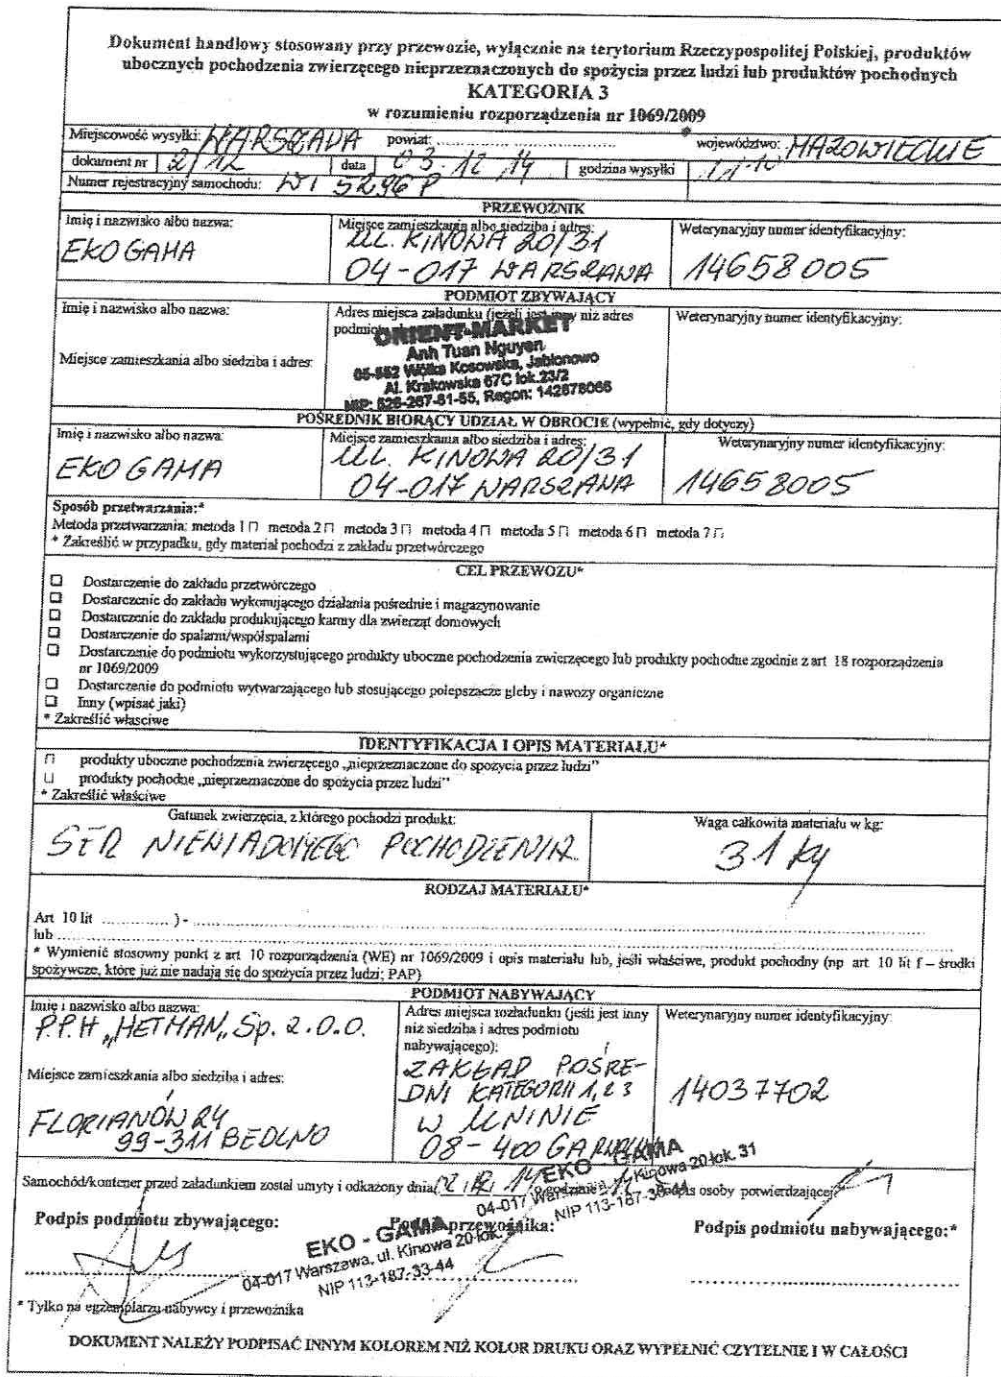 Dokument handlowy stosowany przy przewozie, wyłącznie na terytorium Rzeczypospolitej Polskiej, produktów
ubocznych pochodzenia zwierzęcego nieprzeznaczonych do spożycia przez ludzi lub produktów pochodnych
KATEGORIA 3
w rozumieniu rozporządzenia nr 1069/2009
Miejscowość wysyłki: WARSZAWA powiat: województwo: MAZOWIECKIE
dokument nr 2/12 data 03.12.14 godzina wysyłki
Numer rejestracyjny samochodu: WI 5296P
PRZEWOŹNIK
Imię i nazwisko albo nazwa: Miejsce zamieszkania albo siedziba i adres: Weterynaryjny numer identyfikacyjny:
EKO GAMA UL. KINOWA 20/31
04-017 WARSZAWA 14658005
PODMIOT ZBYWAJĄCY
Imię i nazwisko albo nazwa: Adres miejsca załadunku (jeżeli jest inny niż adres Weterynaryjny numer identyfikacyjny:
ORIENT-MARKET
Anh Tuan Nguyen
Miejsce zamieszkania albo siedziba i adres:
05-552 Wólka Kosowska, Jabłonowo
Al. Krakowska 67C lok.23/2
NIP: 526-267-81-55, Regon: 142878066
POŚREDNIK BIORĄCY UDZIAŁ W OBROCIE (wypełnić, gdy dotyczy)
Imię i nazwisko albo nazwa: Miejsce zamieszkania albo siedziba i adres: Weterynaryjny numer identyfikacyjny:
EKO GAMA UL. KINOWA 20/31
04-017 WARSZAWA 14658005
Sposób przetwarzania:*
Metoda przetwarzania: metoda 1 metoda 2 metoda 3 metoda 4 metoda 5 metoda 6 metoda 7
* Zakreślić w przypadku, gdy materiał pochodzi z zakładu przetwórczego
CEL PRZEWOZU*
Dostarczenie do zakładu przetwórczego
Dostarczenie do zakładu wykonującego działania pośrednie i magazynowanie
Dostarczenie do zakładu produkującego karmy dla zwierząt domowych
Dostarczenie do spalarni/współspalarni
Dostarczenie do podmiotu wykorzystującego produkty uboczne pochodzenia zwierzęcego lub produkty pochodne zgodnie z art 18 rozporządzenia
nr 1069/2009
Dostarczenie do podmiotu wytwarzającego lub stosującego polepszacze gleby i nawozy organiczne
Inny (wpisać jaki)
* Zakreślić właściwe
IDENTYFIKACJA I OPIS MATERIAŁU*
produkty uboczne pochodzenia zwierzęcego „nieprzeznaczone do spożycia przez ludzi”
produkty pochodne „nieprzeznaczone do spożycia przez ludzi”
* Zakreślić właściwe
Gatunek zwierzęcia, z którego pochodzi produkt: Waga całkowita materiału w kg:
SER NIEWIADOMEGO POCHODZENIA 31 kg
RODZAJ MATERIAŁU*
Art 10 lit ............ ) - ............
lub ............
* Wymienić stosowny punkt z art 10 rozporządzenia (WE) nr 1069/2009 i opis materiału lub, jeśli właściwe, produkt pochodny (np art 10 lit f – środki
spożywcze, które już nie nadają się do spożycia przez ludzi; PAP)
PODMIOT NABYWAJĄCY
Imię i nazwisko albo nazwa: Adres miejsca rozładunku (jeśli jest inny Weterynaryjny numer identyfikacyjny:
P.P.H „HETMAN„ Sp. z.O.O. niż siedziba i adres podmiotu
nabywającego):
Miejsce zamieszkania albo siedziba i adres: ZAKŁAD POŚRE-
DNI KATEGORII 1,2 3 14037702
FLORIANÓW 24 W UNINIE
99-311 BEDLNO 08-400
Samochód/kontener przed załadunkiem został umyty i odkażony dnia podpis osoby potwierdzającej
EKO - GAMA
04-017 Warszawa, ul. Kinowa 20 lok. 31
NIP 113-187-33-44
Podpis podmiotu zbywającego: Podpis przewoźnika: Podpis podmiotu nabywającego:*
EKO - GAMA
04-017 Warszawa, ul. Kinowa 20 lok.
NIP 113-187-33-44
* Tylko na egzemplarzu nabywcy i przewoźnika
DOKUMENT NALEŻY PODPISAĆ INNYM KOLOREM NIŻ KOLOR DRUKU ORAZ WYPEŁNIĆ CZYTELNIE I W CAŁOŚCI